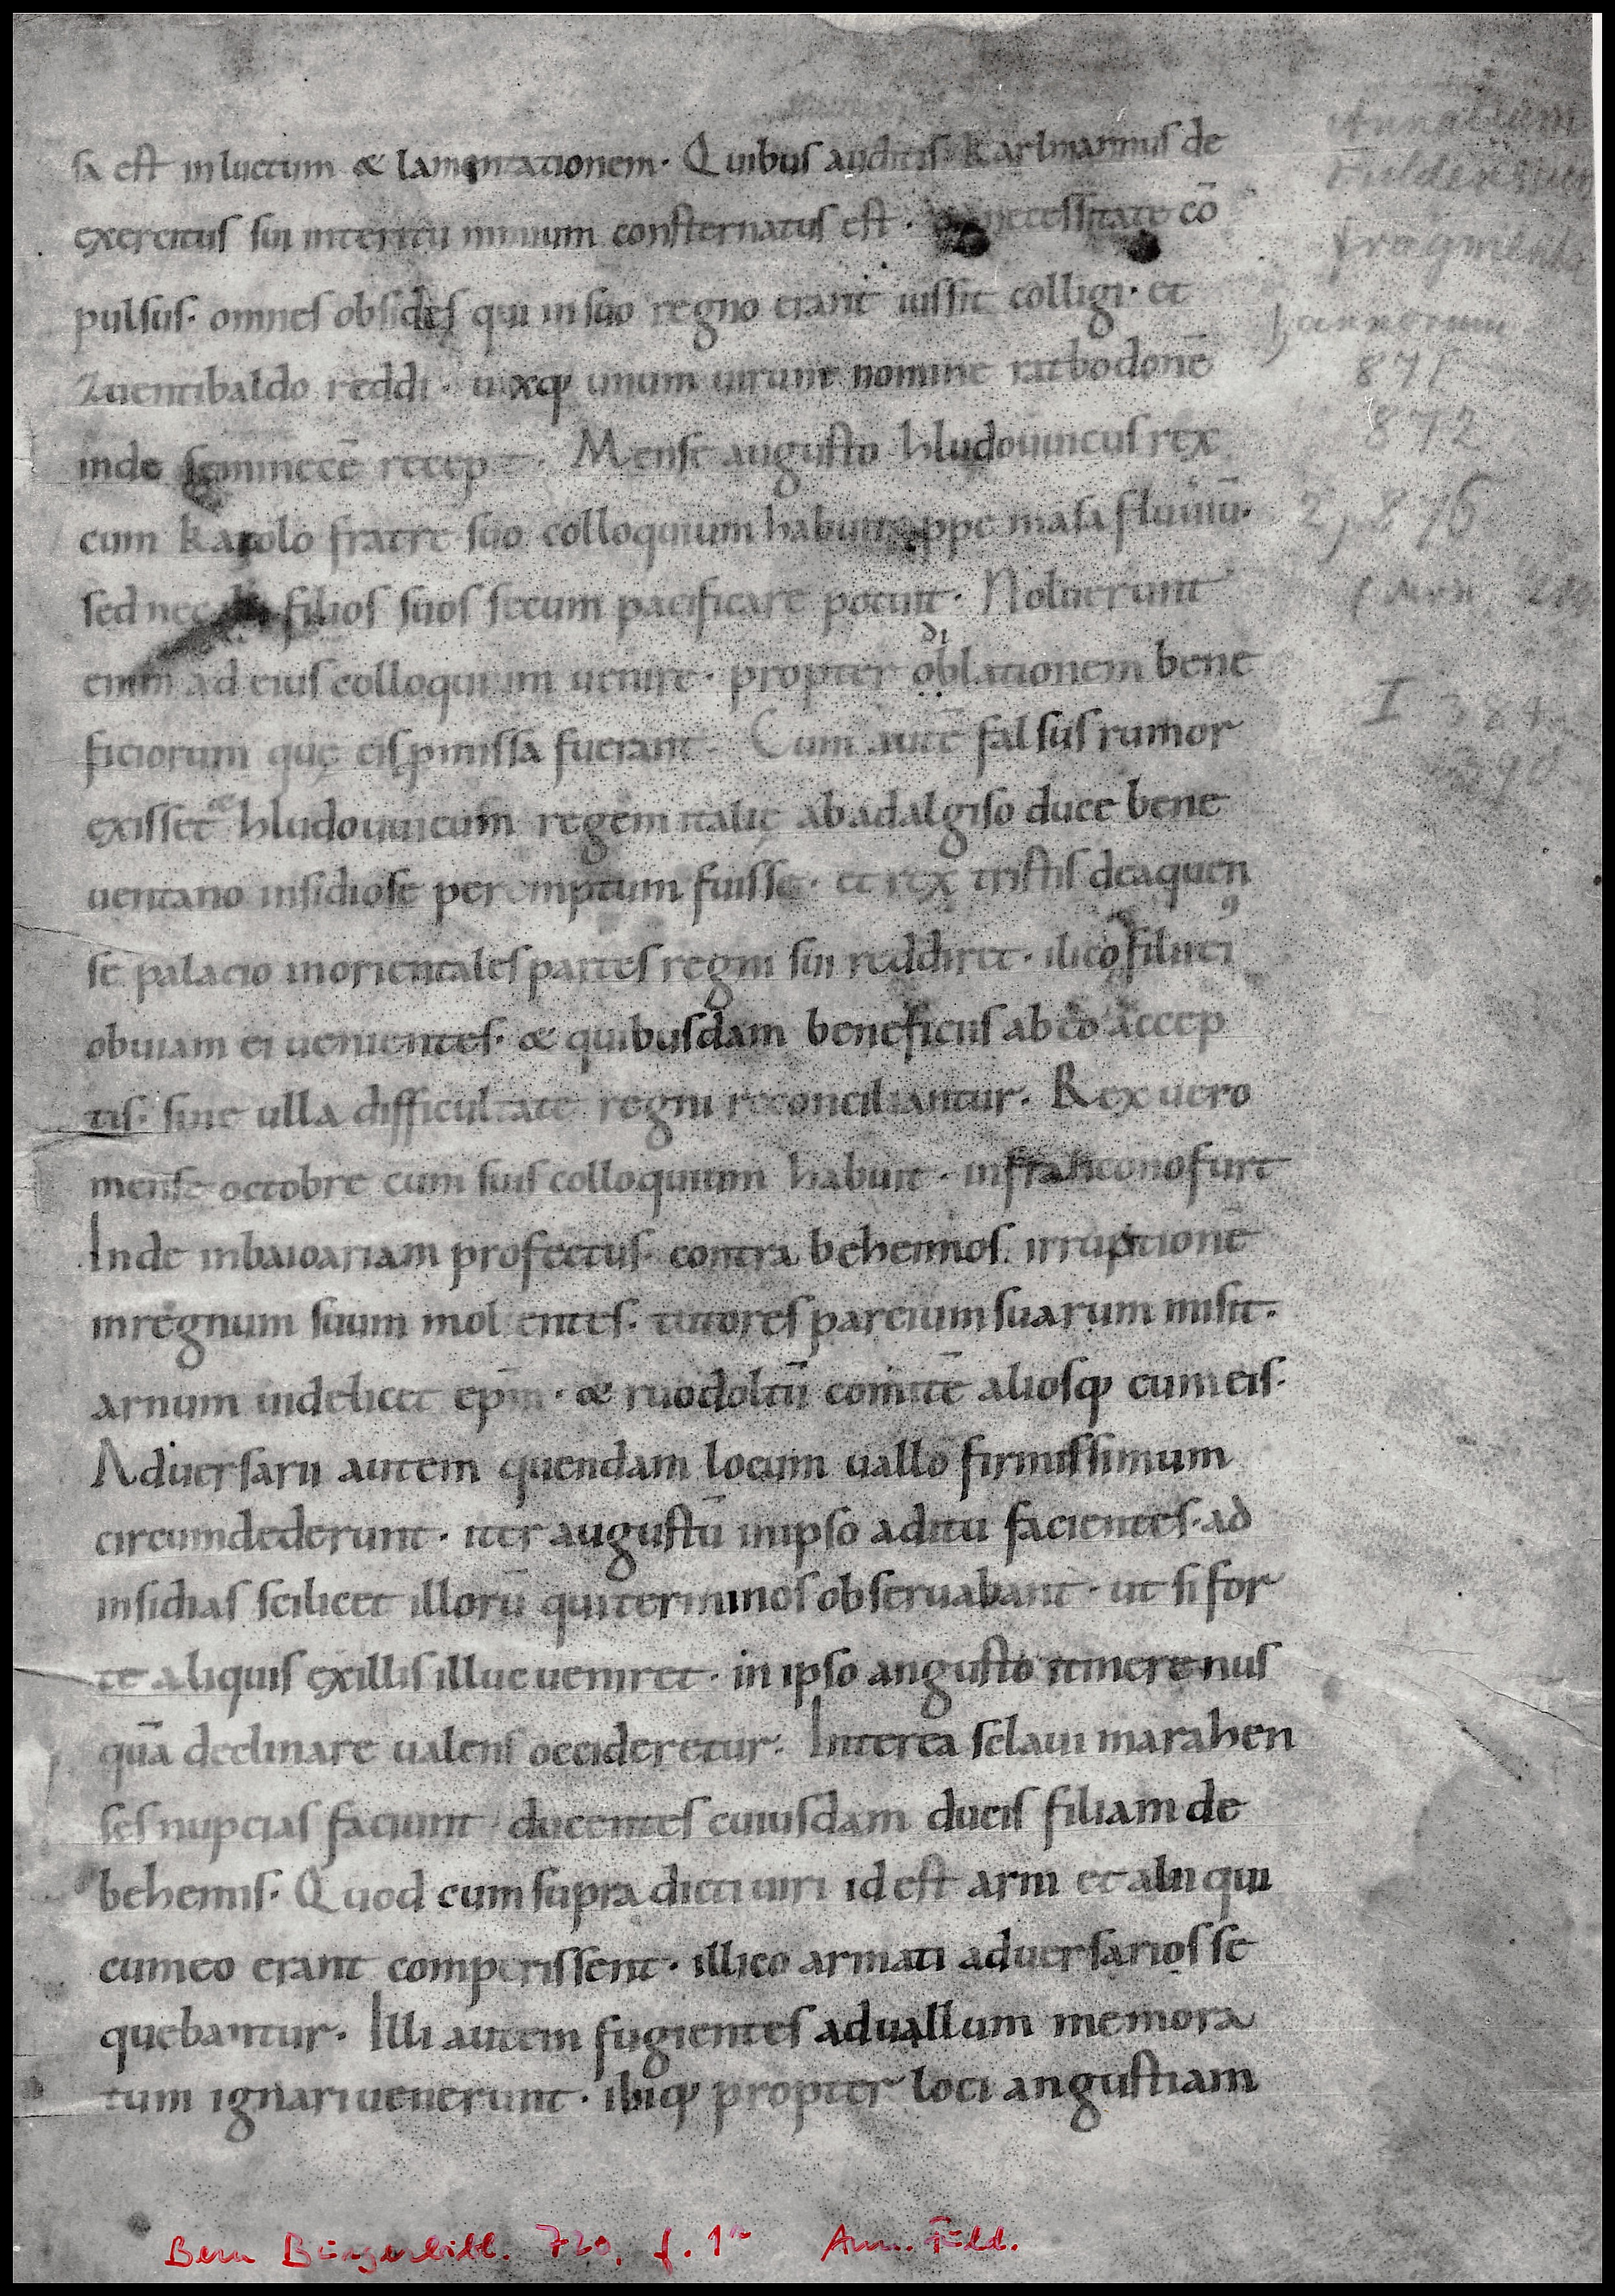 sa est in luctum & lamentationem· Quibus auditis Karlmannus de
exercitus sui interitu nimium consternatus est · necessitate cō
pulsus· omnes obsides qui in suo regno erant iussit colligi· et
Zuentibaldo reddi· uixq; unum uirum nomine ratbodonē
inde seminecē recepit· Mense augusto hludouuicus rex
cum Karolo fratre suo colloquium habuit ppe masa fluuiū·
sed nec filios suos secum pacificare potuit· Noluerunt
enim ad eius colloquium uenire· propter oblationem bene
ficiorum quę eis pmissa fuerant· Cum autē falsus rumor
exisset hludouuicum regem italię ab adalgiso duce bene
uentano insidiose peremptum fuisse· et rex tristis de aquen
se palacio in orientales partes regni sui reddiret· ilico filii ei
obuiam ei uenientes· & quibusdam beneficiis ab eo accep
tis· sine ulla difficultate regni reconciliantur· Rex uero
mense octobre cum suis colloquium habuit· in franconofurt
Inde in baioariam profectus· contra behemos· irruptionē
in regnum suum molientes· tutores parcium suarum misit·
arnum uidelicet epm̄· & ruodoltū comitē aliosq; cum eis·
Aduersarii autem quendam locum uallo firmissimum
circumdederunt· iter augustū in ipso aditu facientes· ad
insidias scilicet illorū qui terminos obseruabant· ut si for
te aliquis ex illis illuc ueniret· in ipso angusto itinere nus
quā declinare ualens occideretur· Interea sclaui marahen
ses nupcias faciunt ducentes cuiusdam ducis filiam de
behemis· Quod cum supra dicti uiri id est arni et alii qui
cum eo erant comperissent· illico armati aduersarios se
quebantur· Illi autem fugientes ad uallum memora
tum ignari uenerunt· ibiq; propter loci angustiam
Annalium
Fuldensium
fragmenta
annorum
871
872
2, 876
I
Bern Burgerbibl. 720, f. 1r Ann. Fuld.